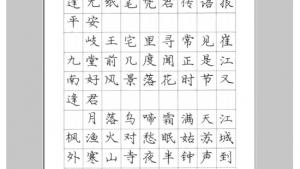 逢无纸笔凭君传语报
平安
岐王宅里寻常见崔
九堂前几度闻正是江
南好风景落花时节又
逢君
月落乌啼霜满天江
枫渔火对愁眠姑苏城
外寒山寺夜半钟声到